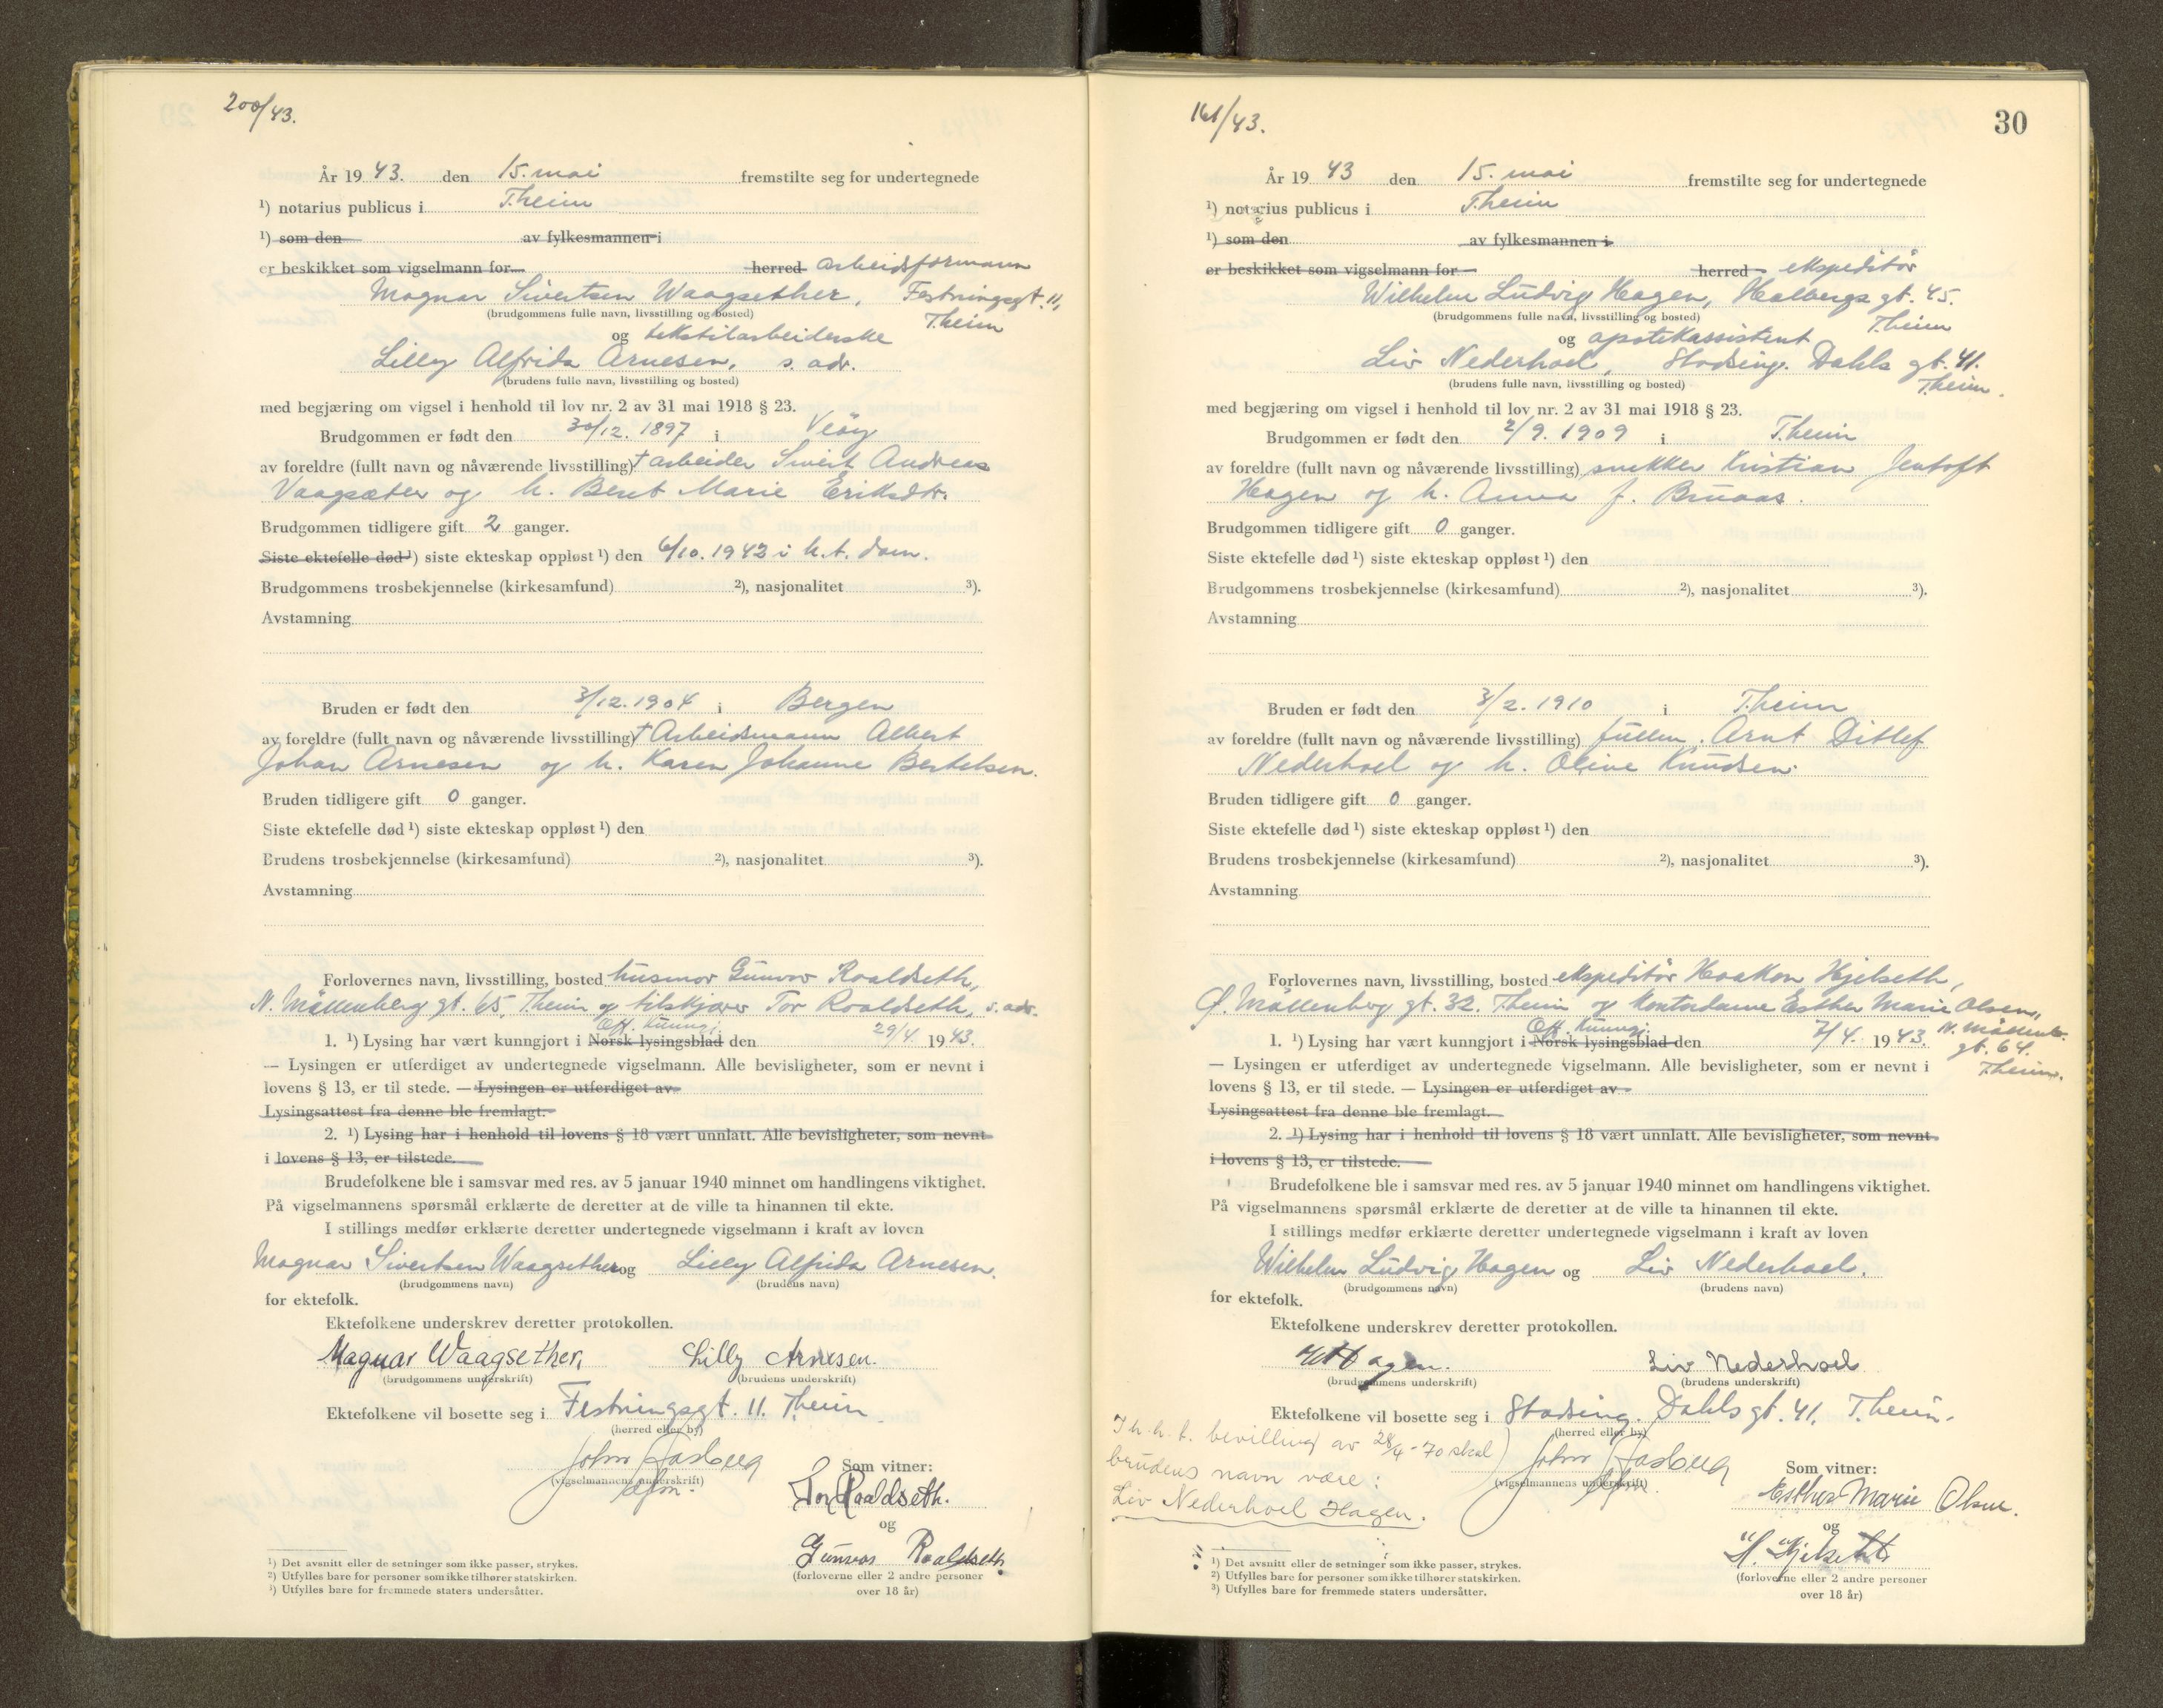 200/43.
År 19 43. den 15. mai fremstilte seg for undertegnede
¹) notarius publicus i T.heim
¹) som den av fylkesmannen i
er beskikket som vigselmann for herred arbeidsformann
Magnar Sivertsen Waagsether, Festningsgt. 11,
(brudgommens fulle navn, livsstilling og bosted) T.heim
og tekstilarbeiderske
Lilly Alfrida Arnesen, s. adr.
(brudens fulle navn, livsstilling og bosted)
med begjæring om vigsel i henhold til lov nr. 2 av 31 mai 1918 § 23.
Brudgommen er født den 30/12. 1897 i Veøy
av foreldre (fullt navn og nåværende livsstilling) † arbeider Sivert Andreas
Vaagsæter og h. Berit Marie Eriksdtr.
Brudgommen tidligere gift 2 ganger.
Siste ektefelle død ¹) siste ekteskap oppløst ¹) den 6/10. 1942 i h.t. dom.
Brudgommens trosbekjennelse (kirkesamfund) ²), nasjonalitet ³).
Avstamning
Bruden er født den 3/12. 1904 i Bergen
av foreldre (fullt navn og nåværende livsstilling) † Arbeidsmann Albert
Johan Arnesen og h. Karen Johanne Bertelsen.
Bruden tidligere gift 0 ganger.
Siste ektefelle død ¹) siste ekteskap oppløst ¹) den
Brudens trosbekjennelse (kirkesamfund) ²), nasjonalitet ³).
Avstamning
Forlovernes navn, livsstilling, bosted husmor Gunvor Roaldseth,
N. Møllenberg gt. 65, T.heim og tilskjærer Tor Roaldseth, s. adr.
Off. kunngj.
1. ¹) Lysing har vært kunngjort i Norsk lysingsblad den 29/4. 19 43.
— Lysingen er utferdiget av undertegnede vigselmann. Alle bevisligheter, som er nevnt i
lovens § 13, er til stede. — Lysingen er utferdiget av
Lysingsattest fra denne ble fremlagt.
2. ¹) Lysing har i henhold til lovens § 18 vært unnlatt. Alle bevisligheter, som nevnt
i lovens § 13, er tilstede.
Brudefolkene ble i samsvar med res. av 5 januar 1940 minnet om handlingens viktighet.
På vigselmannens spørsmål erklærte de deretter at de ville ta hinannen til ekte.
I stillings medfør erklærte deretter undertegnede vigselmann i kraft av loven
Magnar Sivertsen Waagsether og Lilly Alfrida Arnesen.
(brudgommens navn) (brudens navn)
for ektefolk.
Ektefolkene underskrev deretter protokollen.
Magnar Waagsether, Lilly Arnesen.
(brudgommens underskrift) (brudens underskrift)
Ektefolkene vil bosette seg i Festningsgt. 11. T.heim
(herred eller by)
John Aasberg
(vigselmannens underskrift)
Som vitner:
Tor Roaldseth.
og
Gunvor Roaldseth
(forloverne eller 2 andre personer
over 18 år)
¹) Det avsnitt eller de setninger som ikke passer, strykes.
²) Utfylles bare for personer som ikke tilhører statskirken.
³) Utfylles bare for fremmede staters undersåtter.
161/43.
30
År 19 43 den 15. mai fremstilte seg for undertegnede
¹) notarius publicus i T.heim
¹) som den av fylkesmannen i
er beskikket som vigselmann for herred ekspeditør
Wilhelm Ludvig Hagen, Holbergs gt. 45.
(brudgommens fulle navn, livsstilling og bosted) T.heim
og apotekassistent
Liv Nederhoel, Stadsing. Dahls gt. 41.
(brudens fulle navn, livsstilling og bosted) T.heim.
med begjæring om vigsel i henhold til lov nr. 2 av 31 mai 1918 § 23.
Brudgommen er født den 2/9. 1909 i T.heim
av foreldre (fullt navn og nåværende livsstilling) snekker Kristian Jentoft
Hagen og h. Anna f. Bruaas.
Brudgommen tidligere gift 0 ganger.
Siste ektefelle død ¹) siste ekteskap oppløst ¹) den
Brudgommens trosbekjennelse (kirkesamfund) ²), nasjonalitet ³).
Avstamning
Bruden er født den 3/2. 1910 i T.heim
av foreldre (fullt navn og nåværende livsstilling) fullm. Arnt Ditlef
Nederhoel og h. Oline Knudsen.
Bruden tidligere gift 0 ganger.
Siste ektefelle død ¹) siste ekteskap oppløst ¹) den
Brudens trosbekjennelse (kirkesamfund) ²), nasjonalitet ³).
Avstamning
Forlovernes navn, livsstilling, bosted ekspeditør Haakon Hjelseth,
Ø. Møllenberg gt. 32. T.heim og kontordame Esther Marie Olsen,
Off. kunngj. N. Møllenb.
1. ¹) Lysing har vært kunngjort i Norsk lysingsblad den 7/4. 19 43. gt. 64.
— Lysingen er utferdiget av undertegnede vigselmann. Alle bevisligheter, som er nevnt i T.heim.
lovens § 13, er til stede. — Lysingen er utferdiget av
Lysingsattest fra denne ble fremlagt.
2. ¹) Lysing har i henhold til lovens § 18 vært unnlatt. Alle bevisligheter, som nevnt
i lovens § 13, er tilstede.
Brudefolkene ble i samsvar med res. av 5 januar 1940 minnet om handlingens viktighet.
På vigselmannens spørsmål erklærte de deretter at de ville ta hinannen til ekte.
I stillings medfør erklærte deretter undertegnede vigselmann i kraft av loven
Wilhelm Ludvig Hagen og Liv Nederhoel.
(brudgommens navn) (brudens navn)
for ektefolk.
Ektefolkene underskrev deretter protokollen.
Hagen. Liv Nederhoel
(brudgommens underskrift) (brudens underskrift)
Ektefolkene vil bosette seg i Stadsing. Dahls gt. 41. T.heim.
(herred eller by)
I h.h.t. bevilling av 28/4-70 skal
brudens navn være:
Liv Nederhoel Hagen.
John Aasberg
(vigselmannens underskrift)
Som vitner:
Esther Marie Olsen.
og
H. Hjelseth
(forloverne eller 2 andre personer
over 18 år)
¹) Det avsnitt eller de setninger som ikke passer, strykes.
²) Utfylles bare for personer som ikke tilhører statskirken.
³) Utfylles bare for fremmede staters undersåtter.